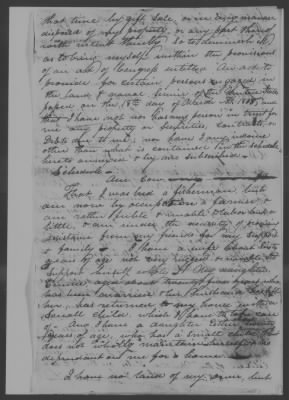 that time by gift, sale, or in any manner
disposed of my property, or any part thereof
with intent thereby so to diminish it
as to bring myself within the provisions
of an act of Congress entitled An act to
provide for certain persons engaged in
the land & naval service of the
passed on the 18th day of March 1818, and
that I have not nor has any person in trust for
me any property or securities, contracts, or
debts due to me; nor have I any income
other than what is contained in the schedule
hereto annexed & by me subscribed.
Schedule
One Cow
That I was bred a fisherman but
am now by occupation a farmer &
am rather feeble & unable to labor but a
little, & am under the necessity of
assistance from my friends for my support
& family. I have a wife about
years of age not very rugged & unable to
support herself My daughter
aged about twenty years
has been married, her husband
her, has returned to my house with a
small child which I have to take care
of. Also I have a daughter Esther
years of age who has a small
does not wholly maintain herself
dependant on me for a home.
I have no land of my own, but